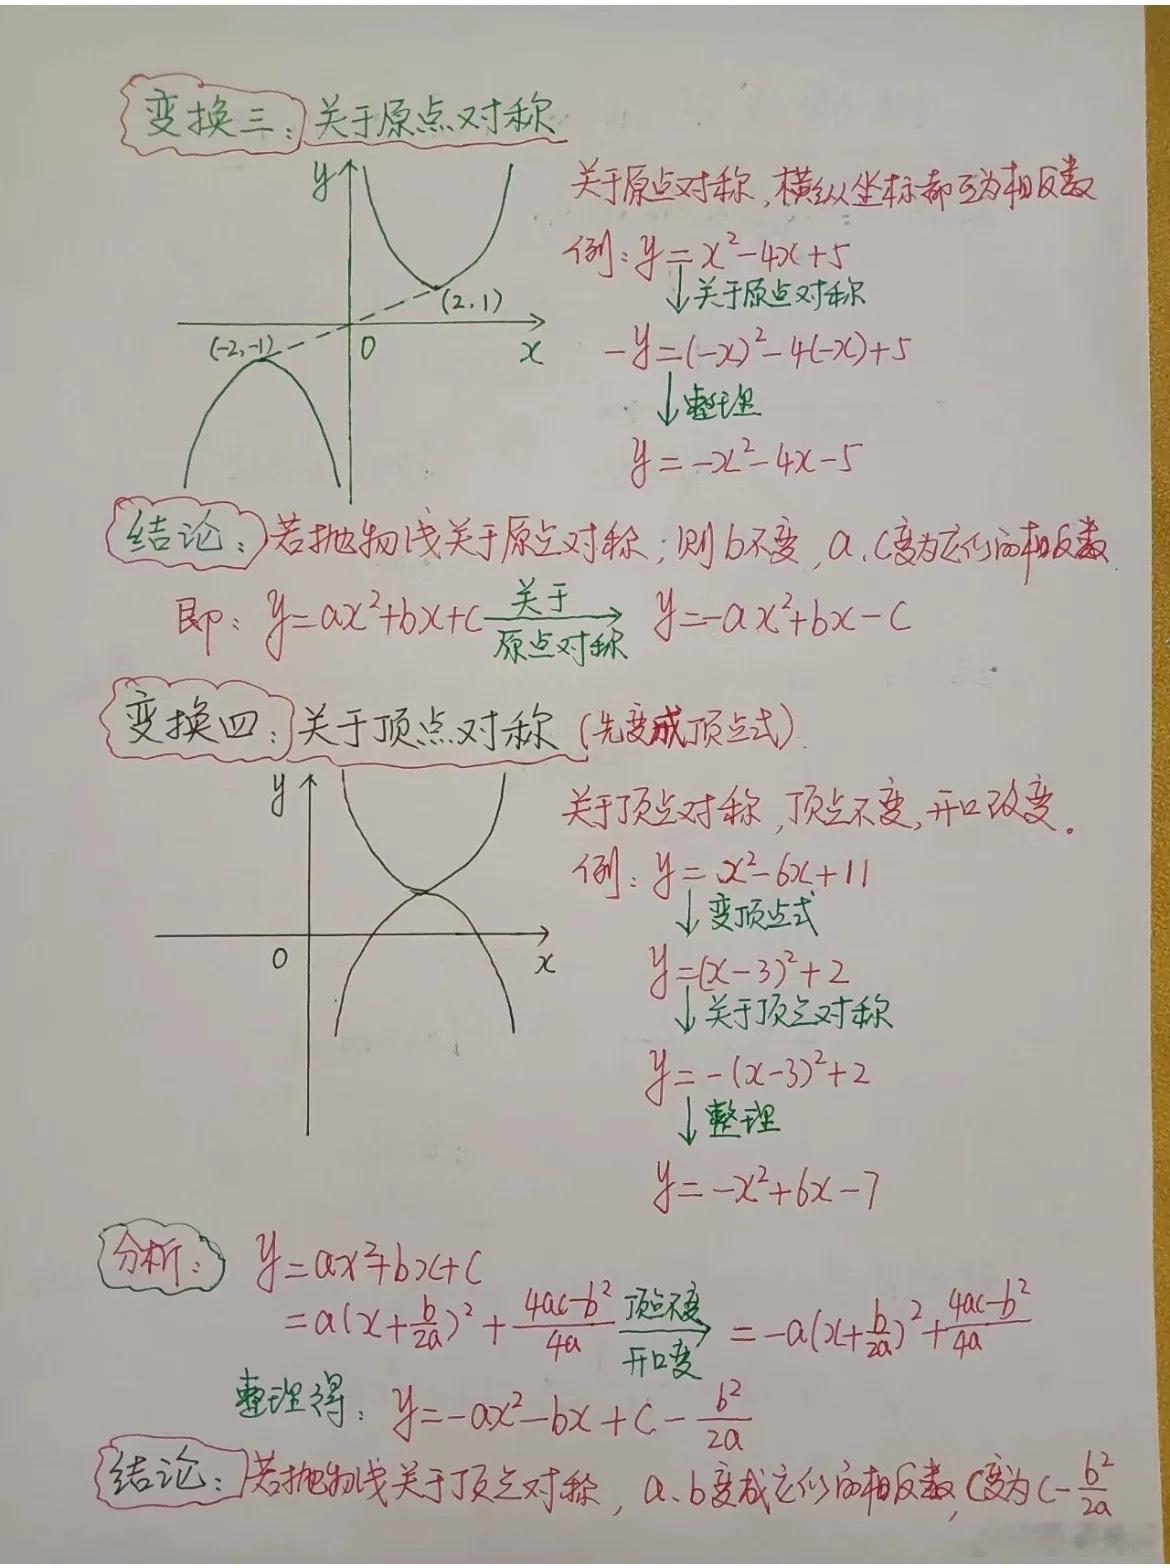 变换三：关于原点对称
y
(2,1)
(-2,-1)
O
x
关于原点对称,横纵坐标都互为相反数
例：y=x²-4x+5
↓关于原点对称
-y=(-x)²-4(-x)+5
↓整理
y=-x²-4x-5
结论：若抛物线关于原点对称；则b不变,a、c变为它们的相反数
即：y=ax²+bx+c 关于原点对称→ y=-ax²+bx-c
变换四：关于顶点对称(先变成顶点式)
y
O
x
关于顶点对称,顶点不变,开口改变。
例：y=x²-6x+11
↓变顶点式
y=(x-3)²+2
↓关于顶点对称
y=-(x-3)²+2
↓整理
y=-x²+6x-7
分析：y=ax²+bx+c
=a(x+b/2a)²+(4ac-b²)/4a 顶点不变 开口变→ =-a(x+b/2a)²+(4ac-b²)/4a
整理得：y=-ax²-bx+c-b²/2a
结论：若抛物线关于顶点对称,a、b变成它们的相反数,c变为c-b²/2a